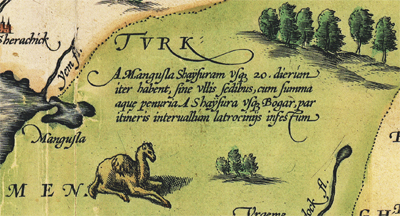 sherachick
TVRK
Yem fl.
A Mangusla Shaysuram usq₃ 20. dierum
iter habent, sine ullis sedibus, cum summa
aque penuria. A Shaysura usq₃ Bogar, par
itineris interuallum latrocinijs infestum
Mangusla
MEN
Vrgeme
fl.
GH